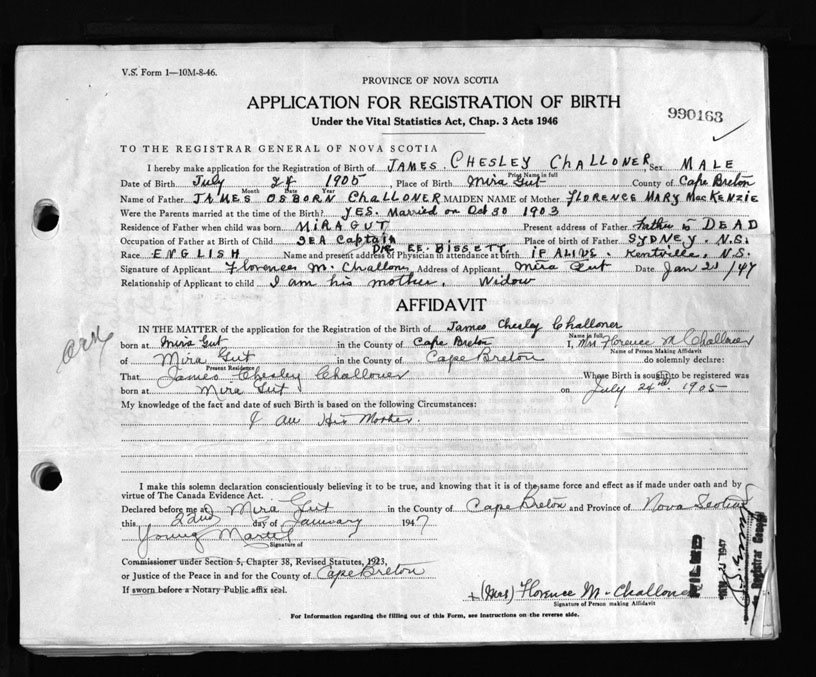 V.S. Form 1—10M-8-46.
PROVINCE OF NOVA SCOTIA
APPLICATION FOR REGISTRATION OF BIRTH
990163
Under the Vital Statistics Act, Chap. 3 Acts 1946
TO THE REGISTRAR GENERAL OF NOVA SCOTIA
I hereby make application for the Registration of Birth of JAMES. CHESLEY CHALLONER Sex MALE
Print Name in full
Date of Birth July 24 1905, Place of Birth Mira Gut County of Cape Breton
Month Date Year
Name of Father JAMES OSBORN CHALLONER MAIDEN NAME of Mother FLORENCE MARY MACKENZIE
Were the Parents married at the time of Birth? YES. Married on Oct 30 1903
Residence of Father when child was born MIRA GUT Present address of Father Father is DEAD
Occupation of Father at Birth of Child SEA Captain Place of birth of Father SYDNEY. N.S.
Race ENGLISH Name and present address of Physician in attendance at birth DR. EE. BISSETT. IF ALIVE. Kentville, N.S.
Signature of Applicant Florence M. Challoner Address of Applicant Mira Gut Date Jan 21/47
Relationship of Applicant to child I am his mother. Widow
AFFIDAVIT
IN THE MATTER of the application for the Registration of the Birth of James Chesley Challoner
Name in full
born at Mira Gut in the County of Cape Breton I, Mrs Florence M Challoner
Name of Person Making Affidavit
of Mira Gut in the County of Cape Breton do solemnly declare:
Present Residence
That James Chesley Challoner Whose Birth is sought to be registered was
born at Mira Gut on July 24th 1905
My knowledge of the fact and date of such Birth is based on the following Circumstances:
I am His Mother.
I make this solemn declaration conscientiously believing it to be true, and knowing that it is of the same force and effect as if made under oath and by
virtue of The Canada Evidence Act.
Declared before me at Mira Gut in the County of Cape Breton and Province of Nova Scotia
this 22nd day of January 1947
Young Martel
Signature of
Commissioner under Section 5, Chapter 38, Revised Statutes, 1923,
or Justice of the Peace in and for the County of Cape Breton
If sworn before a Notary Public affix seal.
+ (Mrs) Florence M. Challoner
Signature of Person making Affidavit
For Information regarding the filling out of this Form, see instructions on the reverse side.
FILED
1947
Registrar General